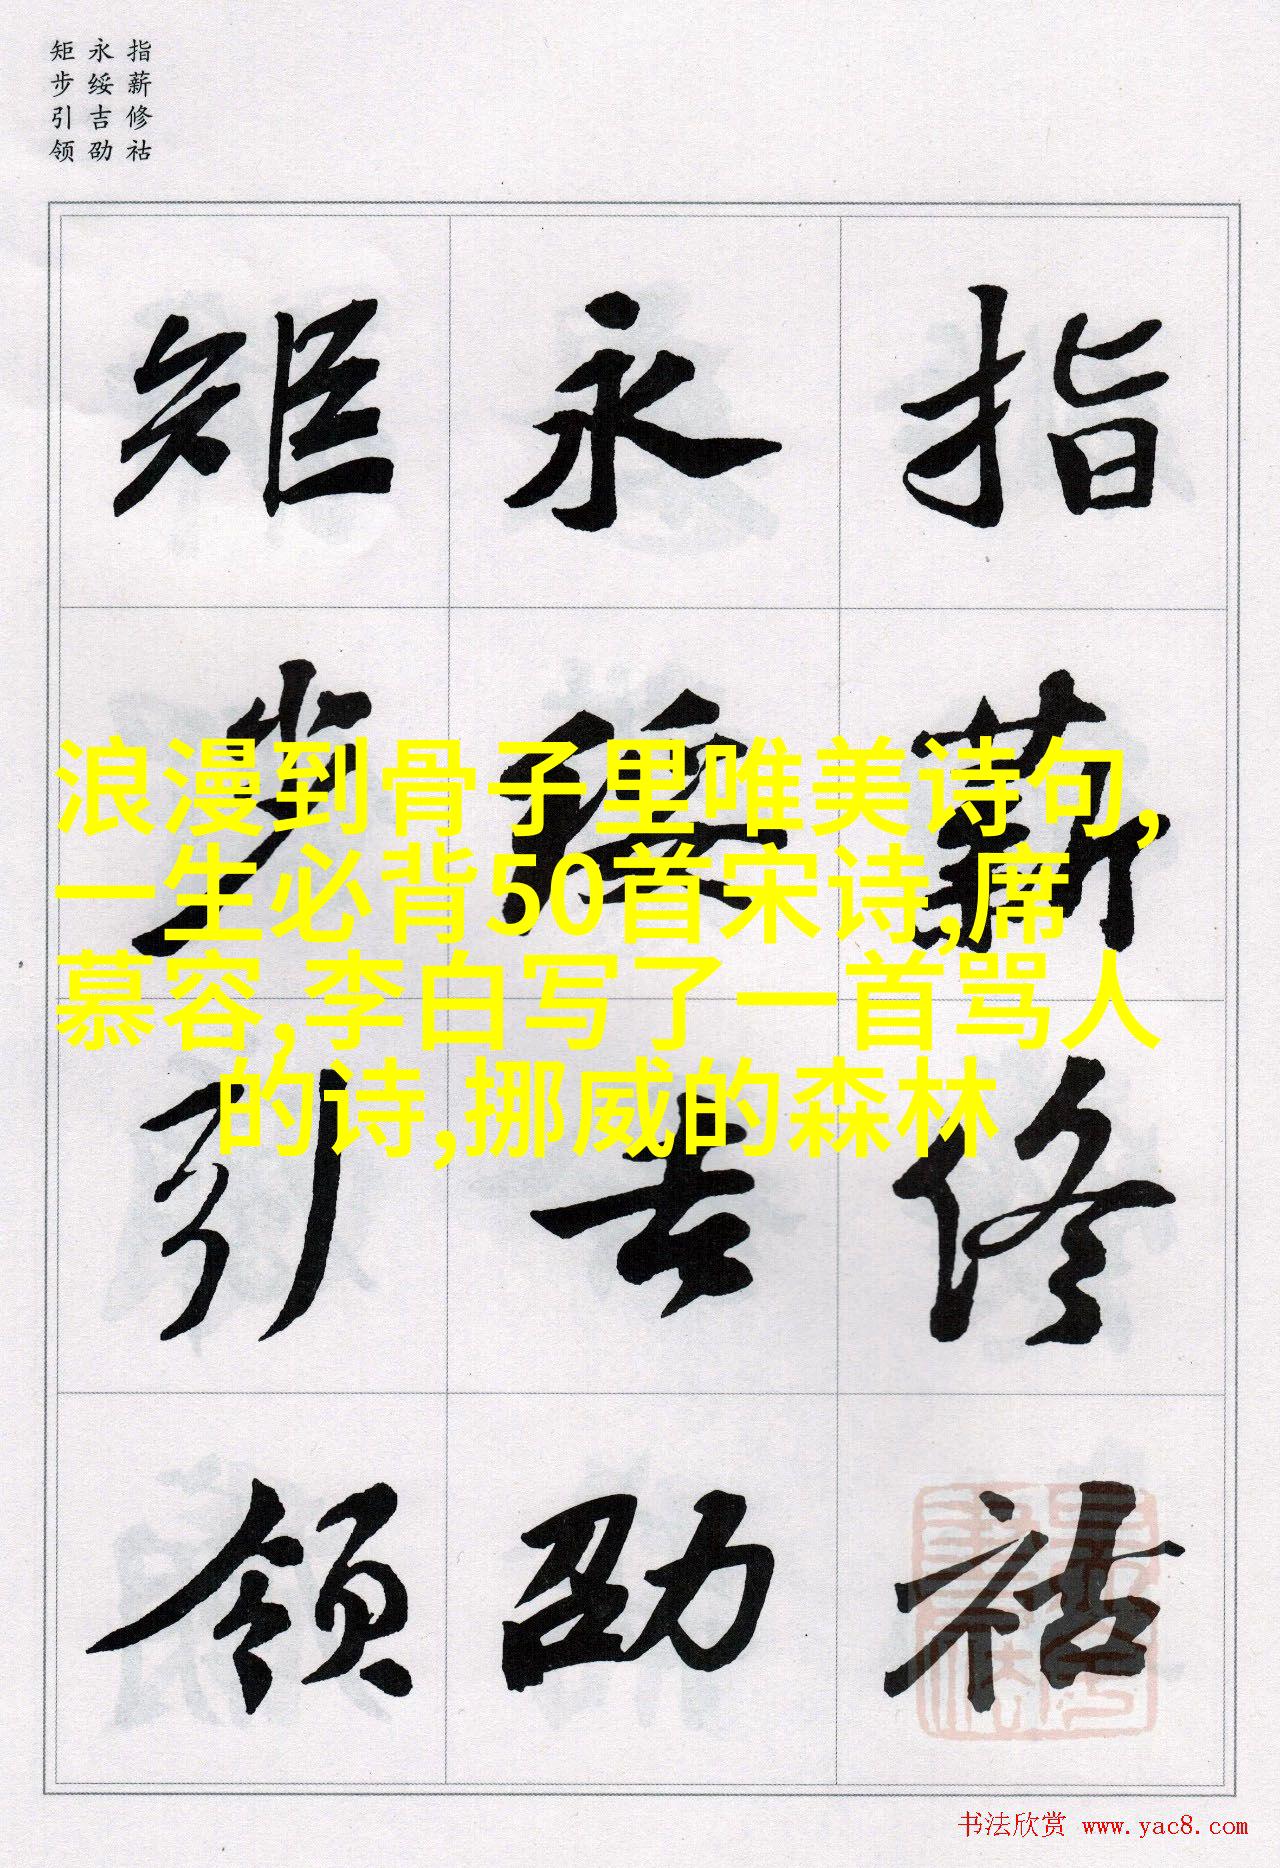 指薪修祜
永绥吉劭
矩步引领
指薪修祜
永绥吉劭
矩步引领
浪漫到骨子里唯美诗句,
一生必背50首宋诗,席
慕容,李白写了一首骂人
的诗,挪威的森林
书法欣赏 www.yac8.com